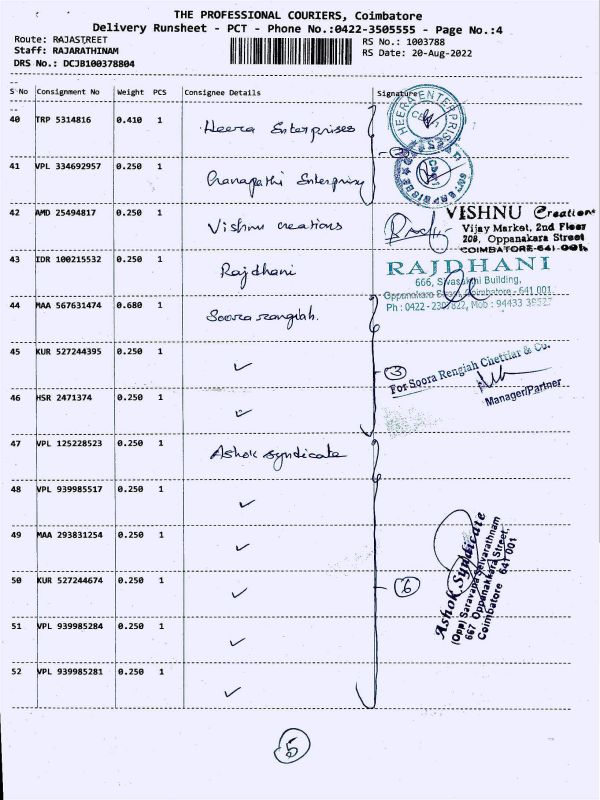 THE PROFESSIONAL COURIERS, Coimbatore
Delivery Runsheet - PCT - Phone No.:0422-3505555 - Page No.:4
Route: RAJASTREET
Staff: RAJARATHINAM
DRS No.: DCJB100378804
RS No.: 1003788
RS Date: 20-Aug-2022
S No Consignment No Weight PCS Consignee Details Signature
40 TRP 5314816 0.410 1 Heera Enterprises
HEERA ENTERPRISES
41 VPL 334692957 0.250 1 Ganapathi Enterprises
42 AMD 25494817 0.250 1 Vishnu creations
VISHNU Creations
Vijay Market, 2nd Floor
208, Oppanakara Street
COIMBATORE-641-001.
43 IDR 100215532 0.250 1 Rajdhani
RAJDHANI
666, Sivasakthi Building,
Oppanakara Street, Coimbatore - 641 001
44 MAA 567631474 0.680 1 Soora rangiah.
45 KUR 527244395 0.250 1 ✓
3
For Soora Rengiah Chettiar & Co.
Manager/Partner
46 HSR 2471374 0.250 1 ✓
47 VPL 125228523 0.250 1 Ashok syndicate
48 VPL 939985517 0.250 1 ✓
49 MAA 293831254 0.250 1 ✓
50 KUR 527244674 0.250 1 ✓
6
Ashok Syndicate
(Opp) Saravana Selvarathnam
667 Oppanakkara Street,
Coimbatore 641 001
51 VPL 939985284 0.250 1 ✓
52 VPL 939985281 0.250 1 ✓
5